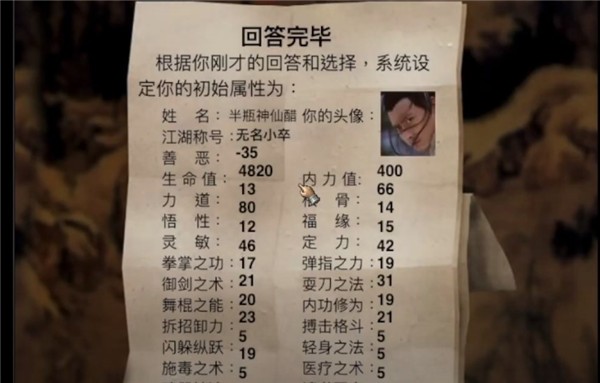 回答完毕
根据你刚才的回答和选择，系统设
定你的初始属性为：
姓 名：半瓶神仙醋 你的头像：
江湖称号：无名小卒
善 恶： -35
生命值： 4820 内力值: 400
13 66
力 道： 80 骨： 14
悟 性： 12 福 缘： 15
灵 敏： 46 定 力： 42
拳掌之功：17 弹指之力：19
御剑之术：21 耍刀之法：31
舞棍之能：20 内功修为：19
拆招卸力：23 搏击格斗：21
5 5
闪躲纵跃：19 轻身之法：
施毒之术：5 医疗之术：5